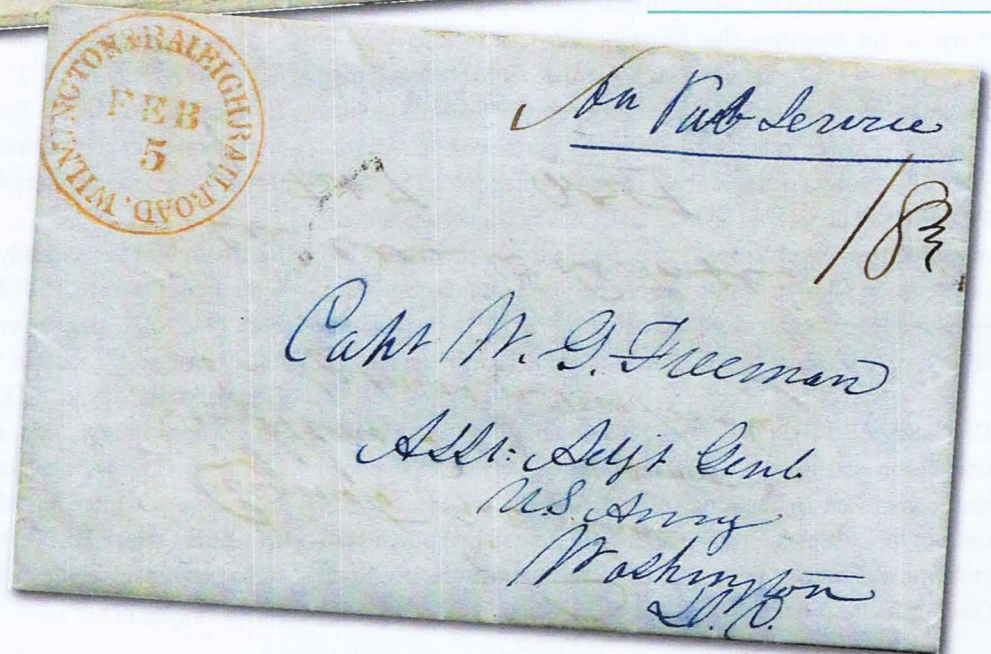 WILMINGTON & RALEIGH RAILROAD.
FEB
5
On Pub Service
18¾
Capt W. G. Freeman
Asst: Adjt Genl
U.S. Army
Washington
D.C.